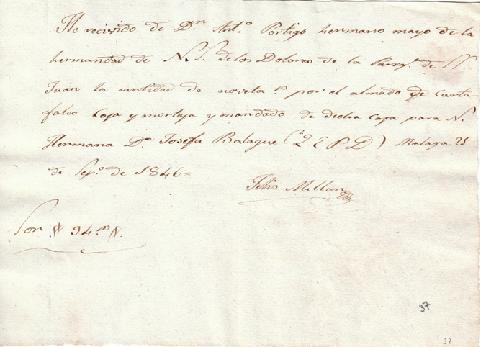 He recivido de Dn. Anto. Portigo hermano mayor de la
hermandad de N. S. de los Dolores de la Parrqa. de Sn.
Juan la cantidad de noventa por el de
falso Caja y mortaja y mandado de dicha Caja para N.
Hermana Da. Josefa Balague (Q E P D) Malaga 21
de Sepe. de 1846
Felis Millan
Son # 94 rs #.
37
37